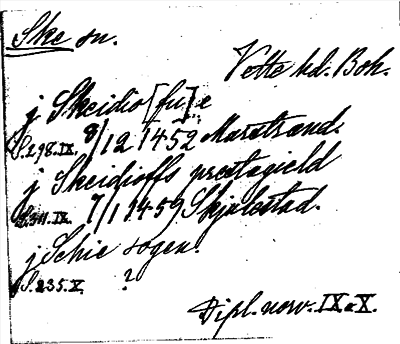 Ske sn.
Vette hd. Boh.
j Skeidio[fu]e
S.298.IX. 8/12 1452 Marstrand.
j Skeidioffs prestagield
S.311.IX. 7/1 1459 Skjalestad.
j Schie sogen.
S.235.X. ?
Dipl. norv. IX o X.